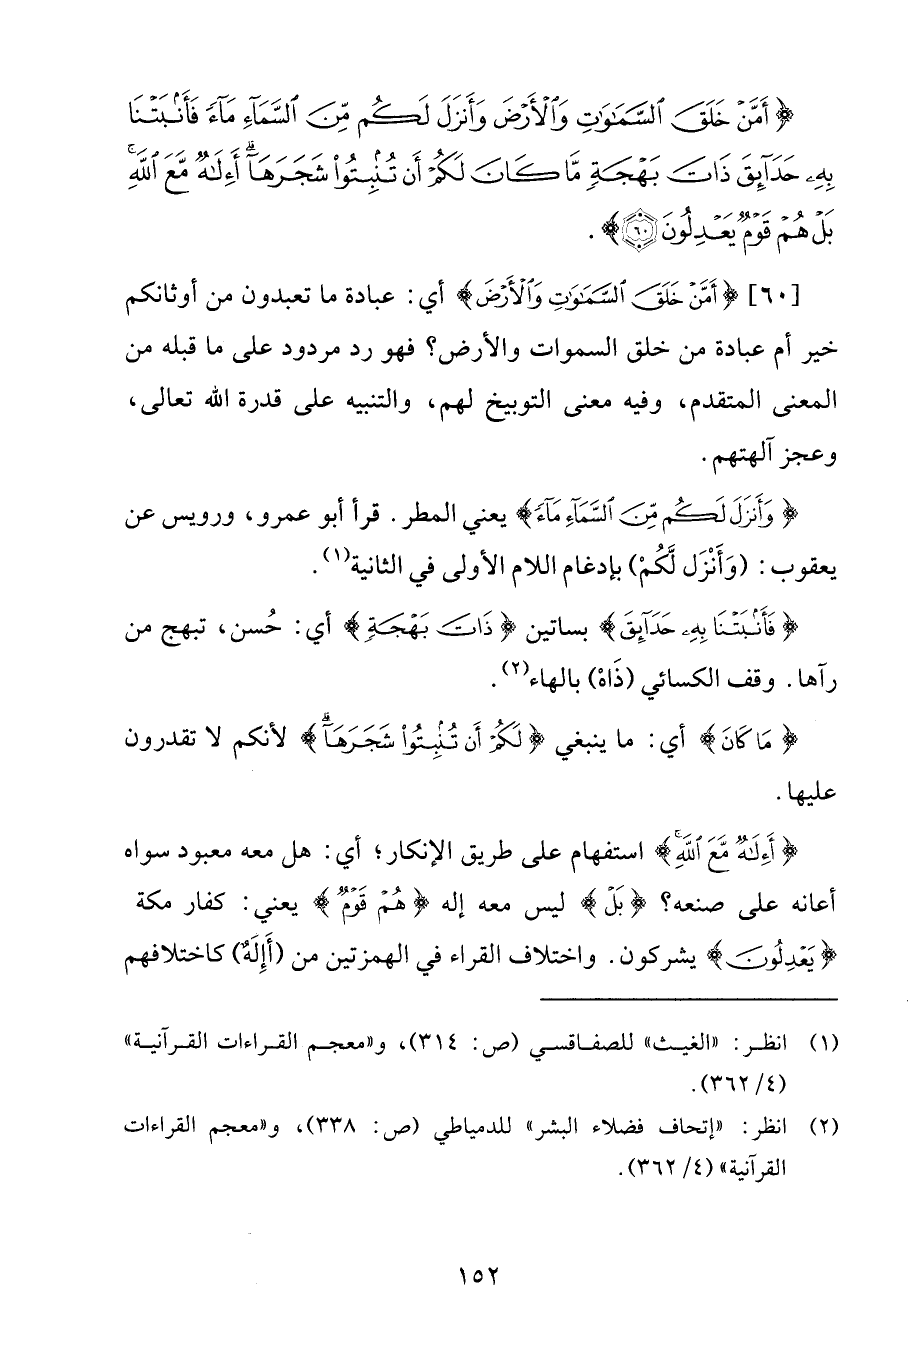 ﴿أَمَّنْ خَلَقَ السَّمَٰوَٰتِ وَالْأَرْضَ وَأَنزَلَ لَكُم مِّنَ السَّمَآءِ مَآءً فَأَنۢبَتْنَا
بِهِۦ حَدَآئِقَ ذَاتَ بَهْجَةٍ مَّا كَانَ لَكُمْ أَن تُنۢبِتُوا۟ شَجَرَهَآ ۗ أَءِلَٰهٌ مَّعَ اللَّهِ ۚ
بَلْ هُمْ قَوْمٌ يَعْدِلُونَ ۝٦٠﴾.
[٦٠] ﴿أَمَّنْ خَلَقَ السَّمَٰوَٰتِ وَالْأَرْضَ﴾ أي: عبادة ما تعبدون من أوثانكم
خير أم عبادة من خلق السموات والأرض؟ فهو رد مردود على ما قبله من
المعنى المتقدم، وفيه معنى التوبيخ لهم، والتنبيه على قدرة الله تعالى،
وعجز آلهتهم.
﴿وَأَنزَلَ لَكُم مِّنَ السَّمَآءِ مَآءً﴾ يعني المطر. قرأ أبو عمرو، ورويس عن
يعقوب: (وَأَنْزَل لَّكُمْ) بإدغام اللام الأولى في الثانية(١).
﴿فَأَنۢبَتْنَا بِهِۦ حَدَآئِقَ﴾ بساتين ﴿ذَاتَ بَهْجَةٍ﴾ أي: حُسن، تبهج من
رآها. وقف الكسائي (ذَاهْ) بالهاء(٢).
﴿مَا كَانَ﴾ أي: ما ينبغي ﴿لَكُمْ أَن تُنۢبِتُوا۟ شَجَرَهَآ ۗ﴾ لأنكم لا تقدرون
عليها.
﴿أَءِلَٰهٌ مَّعَ اللَّهِ ۚ﴾ استفهام على طريق الإنكار؛ أي: هل معه معبود سواه
أعانه على صنعه؟ ﴿بَلْ﴾ ليس معه إله ﴿هُمْ قَوْمٌ﴾ يعني: كفار مكة
﴿يَعْدِلُونَ﴾ يشركون. واختلاف القراء في الهمزتين من (أَإِلَهٌ) كاختلافهم
(١) انظر: «الغيث» للصفاقسي (ص: ٣١٤)، و«معجم القراءات القرآنية»
(٤/ ٣٦٢).
(٢) انظر: «إتحاف فضلاء البشر» للدمياطي (ص: ٣٣٨)، و«معجم القراءات
القرآنية» (٤/ ٣٦٢).
١٥٢